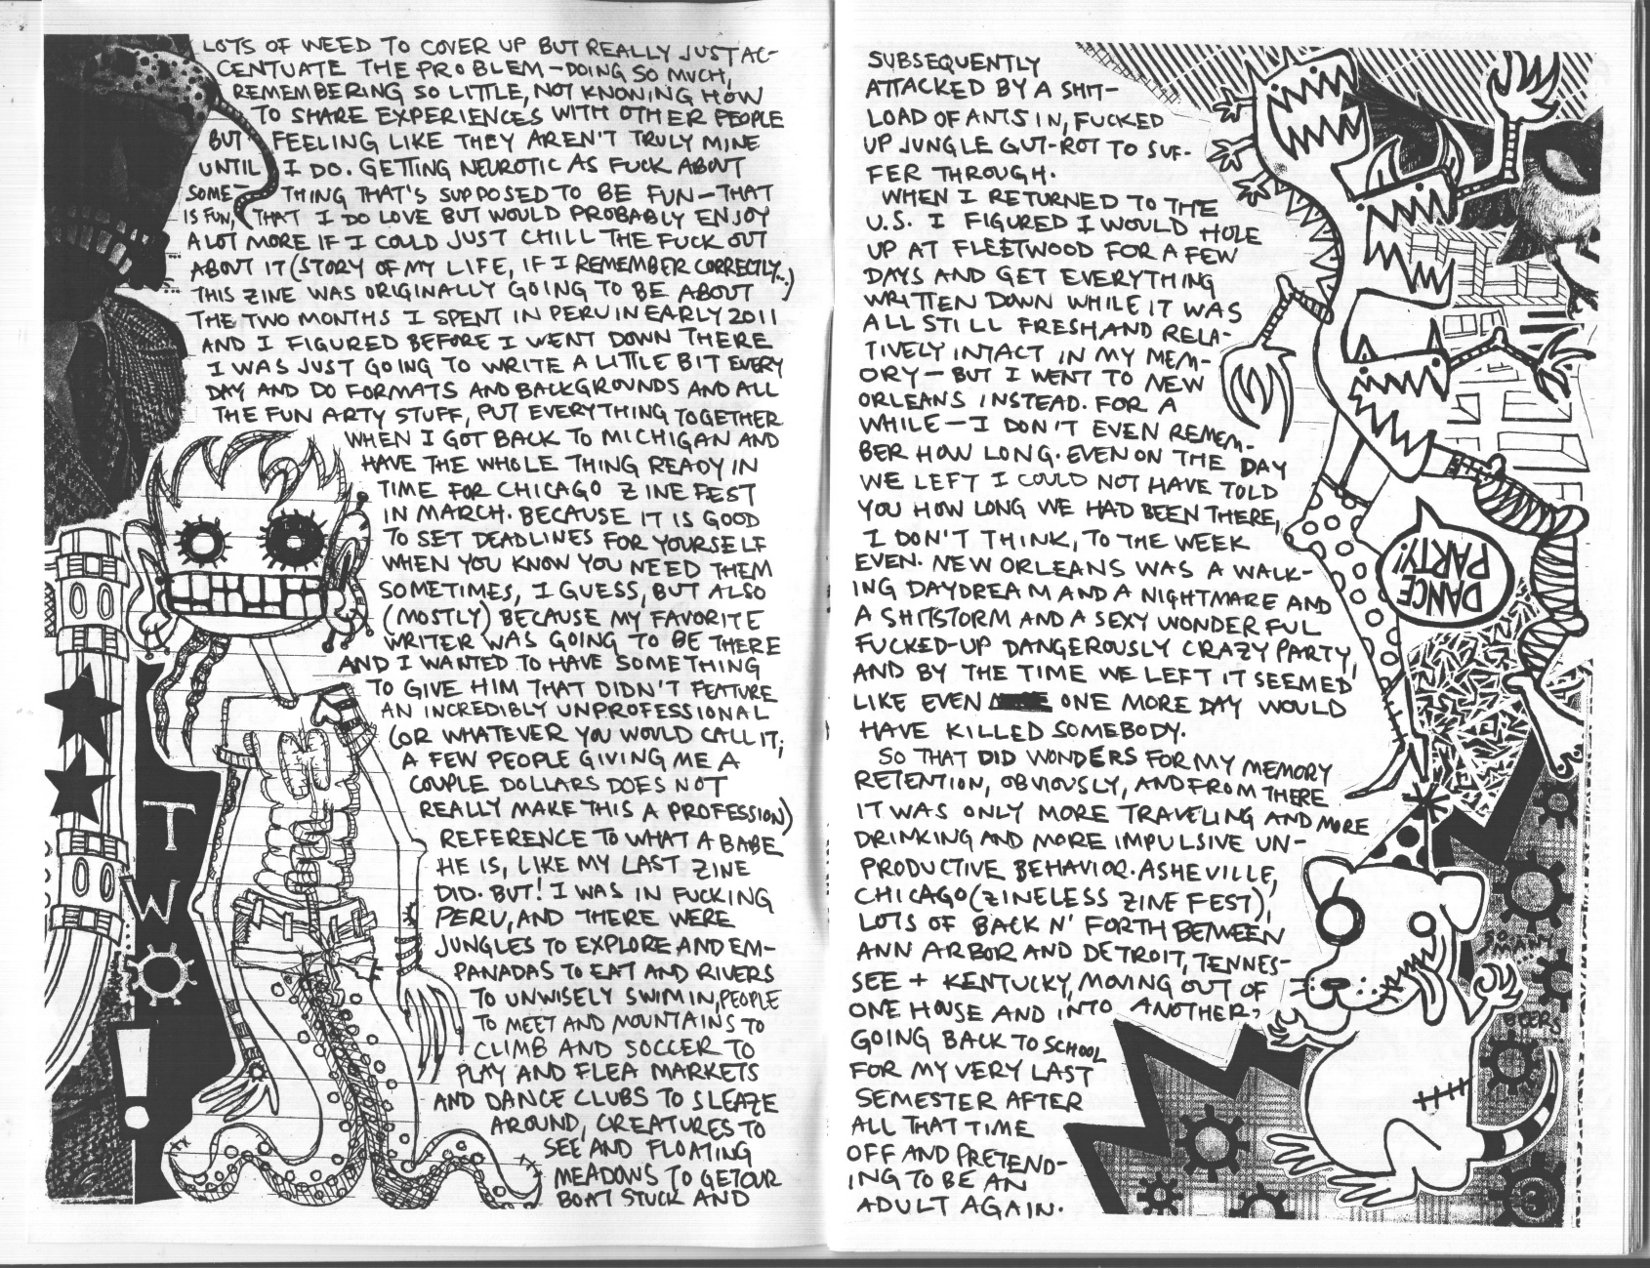 LOTS OF WEED TO COVER UP BUT REALLY JUST AC-
CENTUATE THE PROBLEM—DOING SO MUCH,
REMEMBERING SO LITTLE, NOT KNOWING HOW
TO SHARE EXPERIENCES WITH OTHER PEOPLE
BUT FEELING LIKE THEY AREN'T TRULY MINE
UNTIL I DO. GETTING NEUROTIC AS FUCK ABOUT
SOME- THING THAT'S SUPPOSED TO BE FUN—THAT
IS FUN, THAT I DO LOVE BUT WOULD PROBABLY ENJOY
A LOT MORE IF I COULD JUST CHILL THE FUCK OUT
ABOUT IT (STORY OF MY LIFE, IF I REMEMBER CORRECTLY...)
THIS ZINE WAS ORIGINALLY GOING TO BE ABOUT
THE TWO MONTHS I SPENT IN PERU IN EARLY 2011
AND I FIGURED BEFORE I WENT DOWN THERE
I WAS JUST GOING TO WRITE A LITTLE BIT EVERY
DAY AND DO FORMATS AND BACKGROUNDS AND ALL
THE FUN ARTY STUFF, PUT EVERYTHING TOGETHER
WHEN I GOT BACK TO MICHIGAN AND
HAVE THE WHOLE THING READY IN
TIME FOR CHICAGO ZINE FEST
IN MARCH. BECAUSE IT IS GOOD
TO SET DEADLINES FOR YOURSELF
WHEN YOU KNOW YOU NEED THEM
SOMETIMES, I GUESS, BUT ALSO
(MOSTLY) BECAUSE MY FAVORITE
WRITER WAS GOING TO BE THERE
AND I WANTED TO HAVE SOMETHING
TO GIVE HIM THAT DIDN'T FEATURE
AN INCREDIBLY UNPROFESSIONAL
(OR WHATEVER YOU WOULD CALL IT;
A FEW PEOPLE GIVING ME A
COUPLE DOLLARS DOES NOT
REALLY MAKE THIS A PROFESSION)
REFERENCE TO WHAT A BABE
HE IS, LIKE MY LAST ZINE
DID. BUT! I WAS IN FUCKING
PERU, AND THERE WERE
JUNGLES TO EXPLORE AND EM-
PANADAS TO EAT AND RIVERS
TO UNWISELY SWIM IN, PEOPLE
TO MEET AND MOUNTAINS TO
CLIMB AND SOCCER TO
PLAY AND FLEA MARKETS
AND DANCE CLUBS TO SLEAZE
AROUND, CREATURES TO
SEE AND FLOATING
MEADOWS TO GET OUR
BOAT STUCK AND
TWO!
SUBSEQUENTLY
ATTACKED BY A SHIT-
LOAD OF ANTS IN, FUCKED
UP JUNGLE GUT-ROT TO SUF-
FER THROUGH.
WHEN I RETURNED TO THE
U.S. I FIGURED I WOULD HOLE
UP AT FLEETWOOD FOR A FEW
DAYS AND GET EVERYTHING
WRITTEN DOWN WHILE IT WAS
ALL STILL FRESH AND RELA-
TIVELY INTACT IN MY MEM-
ORY—BUT I WENT TO NEW
ORLEANS INSTEAD. FOR A
WHILE—I DON'T EVEN REMEM-
BER HOW LONG. EVEN ON THE DAY
WE LEFT I COULD NOT HAVE TOLD
YOU HOW LONG WE HAD BEEN THERE,
I DON'T THINK, TO THE WEEK
EVEN. NEW ORLEANS WAS A WALK-
ING DAYDREAM AND A NIGHTMARE AND
A SHITSTORM AND A SEXY WONDERFUL
FUCKED-UP DANGEROUSLY CRAZY PARTY,
AND BY THE TIME WE LEFT IT SEEMED
LIKE EVEN ONE MORE DAY WOULD
HAVE KILLED SOMEBODY.
SO THAT DID WONDERS FOR MY MEMORY
RETENTION, OBVIOUSLY, AND FROM THERE
IT WAS ONLY MORE TRAVELING AND MORE
DRINKING AND MORE IMPULSIVE UN-
PRODUCTIVE BEHAVIOR. ASHEVILLE,
CHICAGO (ZINELESS ZINE FEST),
LOTS OF BACK N' FORTH BETWEEN
ANN ARBOR AND DETROIT, TENNES-
SEE + KENTUCKY, MOVING OUT OF
ONE HOUSE AND INTO ANOTHER,
GOING BACK TO SCHOOL
FOR MY VERY LAST
SEMESTER AFTER
ALL THAT TIME
OFF AND PRETEND-
ING TO BE AN
ADULT AGAIN.
DANCE
PARTY!
SO
MANY
BEERS
3